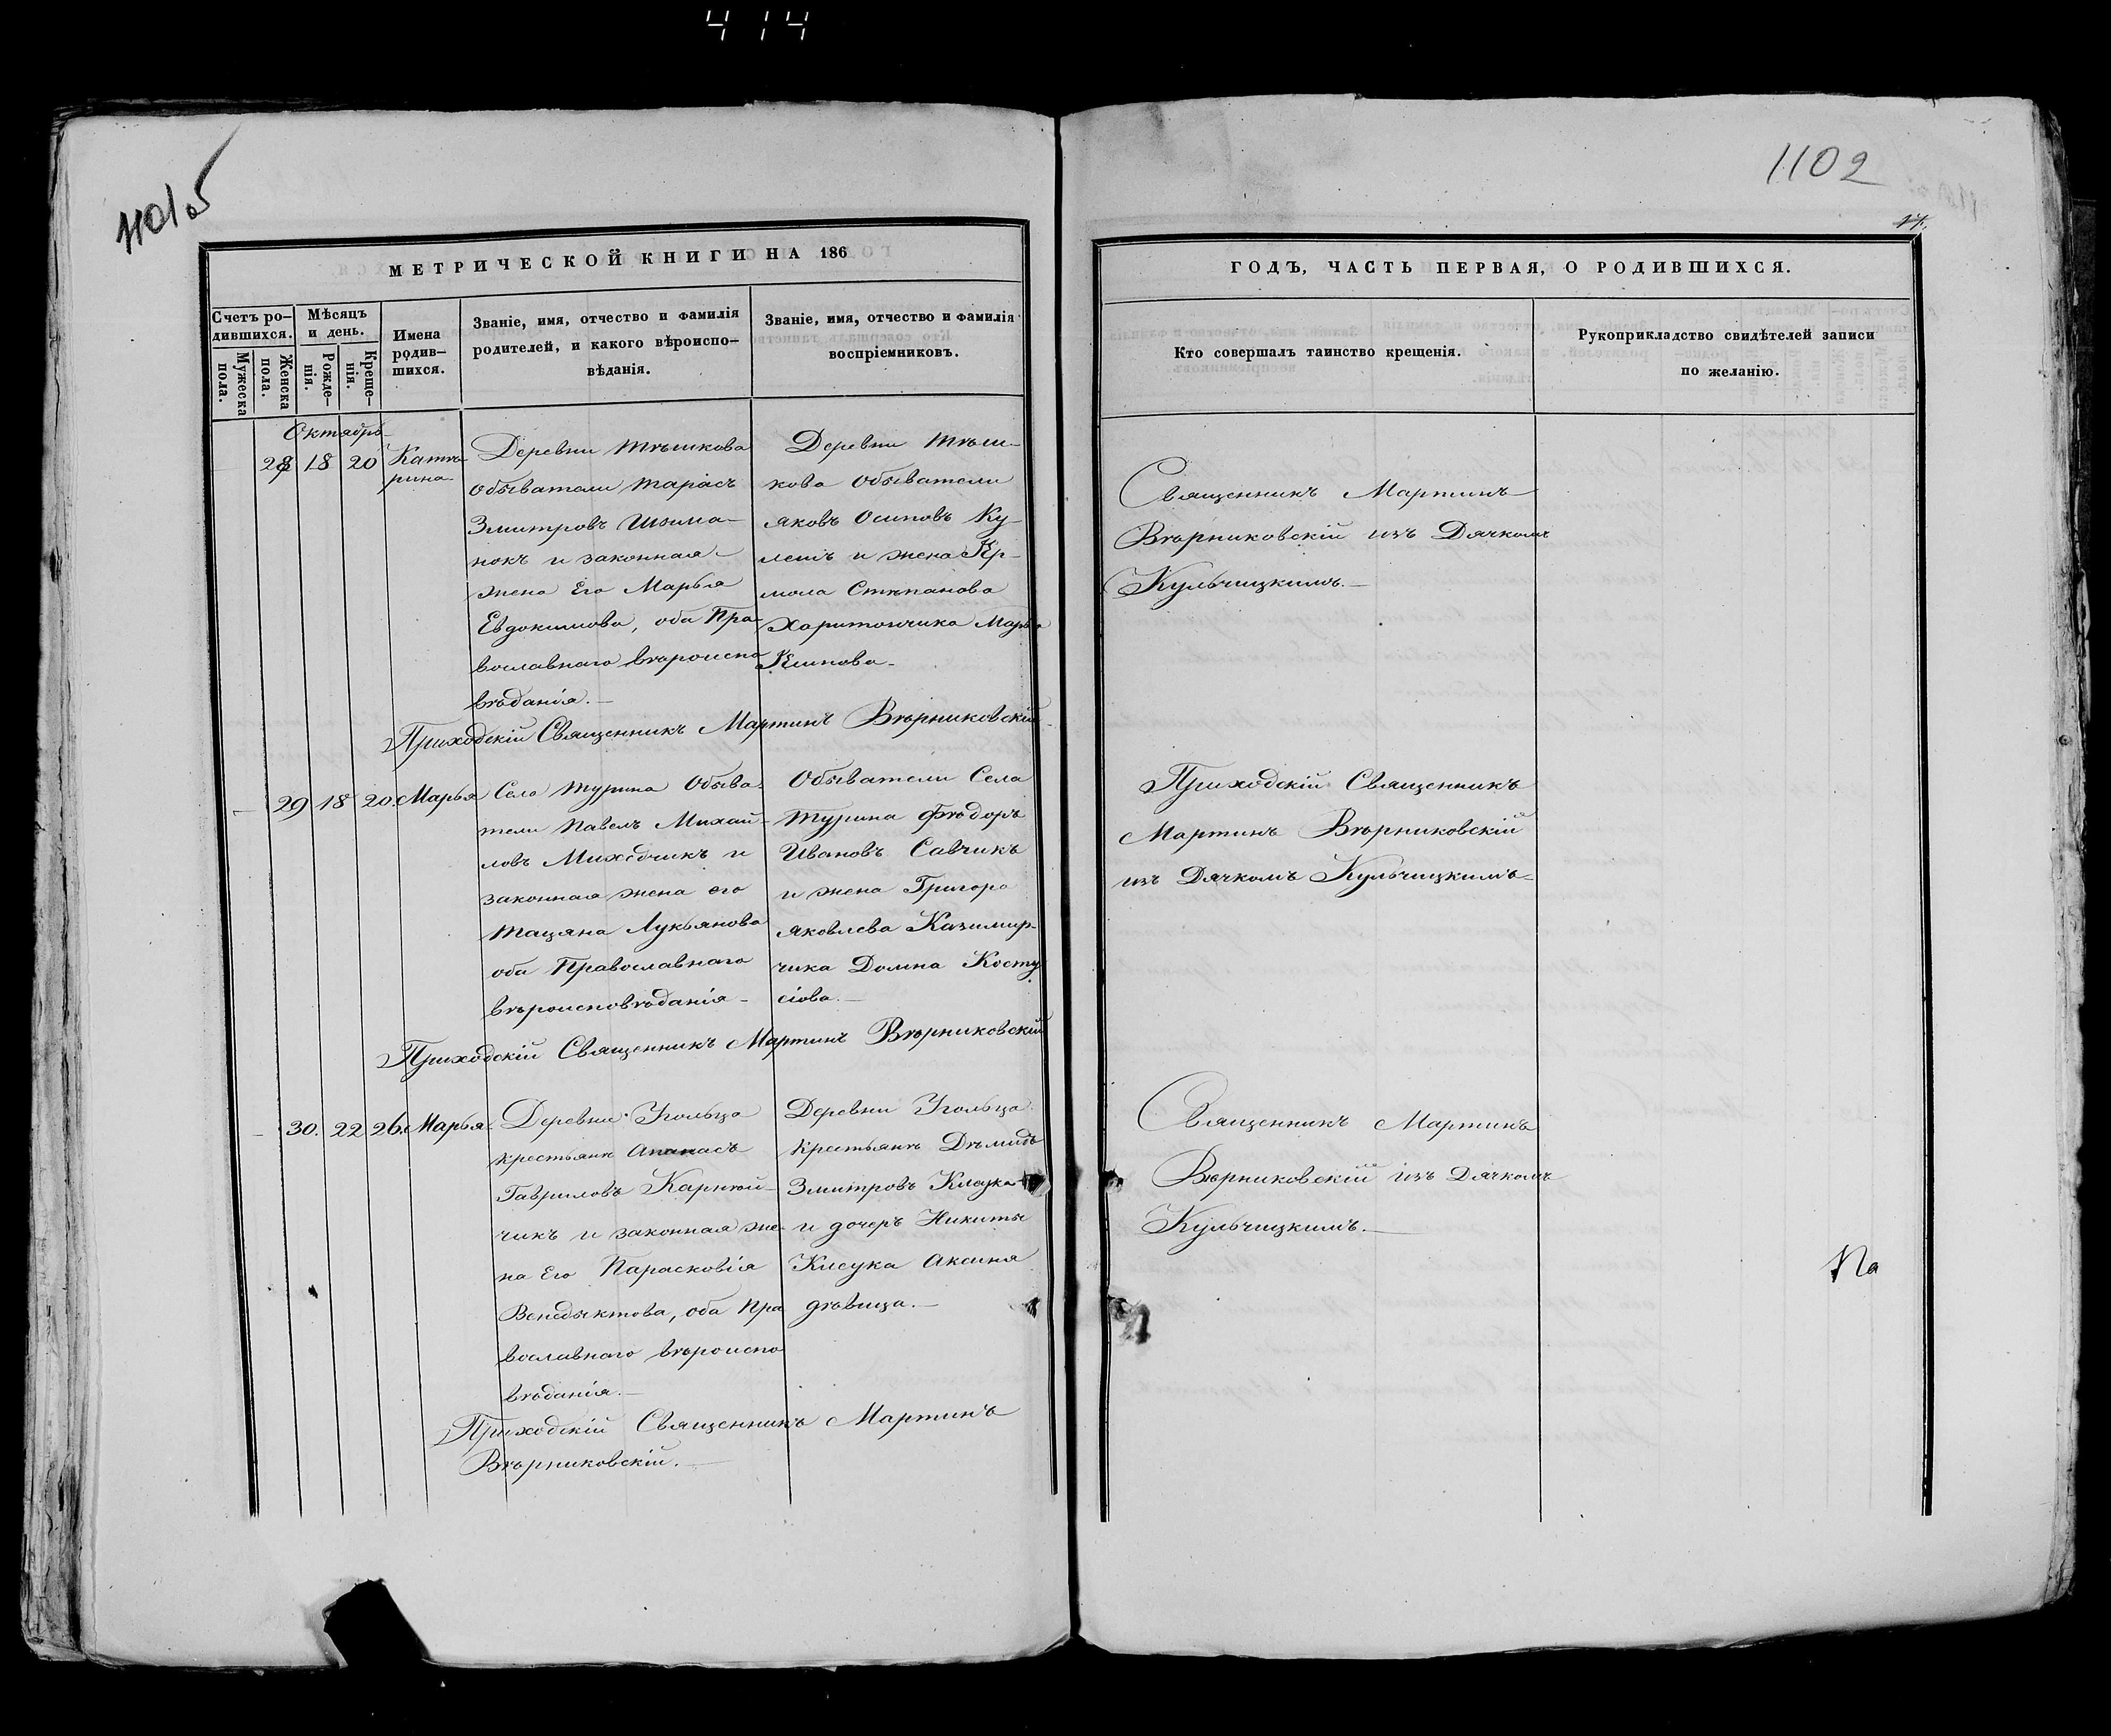 414
1102
МЕТРИЧЕСКОЙ КНИГИ НА 186
Счетъ родившихся.
Мужеска пола.
Женска пола.
Мѣсяцъ и день.
Рожденія.
Крещенія.
Имена родившихся.
Званіе, имя, отчество и фамилія
родителей, и какого вѣроиспо-
вѣданія.
Званіе, имя, отчество и фамилія
воспріемниковъ.
Октябрь
28 18 20 Катѣ-
рина
Деревни Тѣшкова
Обыватели Тарасъ
Змитровъ Шима-
нокъ и законная
жена Его Марья
Евдокимова, оба Пра-
вославнаго вѣроиспо
вѣданія.
Деревни Тѣш-
кова Обыватели
Яковъ Осиповъ Ку-
лешъ и жена
Стѣпанова
Харитончика Марья
Приходскій Священникъ Мартинъ Вѣрниковскій
29 18 20. Марья
Села Турина Обыва-
тели Павелъ Михай-
ловъ Миходчикъ и
законная жена его
Тацяна Лукьянова
оба Православнаго
вѣроисповѣданія
Обыватели Села
Турина Фѣдоръ
Ивановъ Савчикъ
и жена Григора
Яковлева Казимир-
чика Домна Косту
сіова.
Приходскій Священникъ Мартинъ Вѣрниковскій
30. 22 26. Марья
Деревни Угольца
крестьянѣ Апанасъ
Гавриловъ
чикъ и законная же-
на Его Парасковія
Венедыктова, оба Пра
вославнаго вѣроиспо
вѣданія.
Деревни Угольца
Крестьянѣ Дѣмидъ
Змитровъ
и дочеръ Никиты
Аксиня
дѣвица.
Приходскій Священникъ Мартинъ
Вѣрниковскій.
ГОДЪ, ЧАСТЬ ПЕРВАЯ, О РОДИВШИХСЯ.
Кто совершалъ таинство крещенія.
Рукоприкладство свидѣтелей записи
по желанію.
Священникъ Мартинъ
Вѣрниковскій изъ Дячкомъ
Кульчицкимъ.
Приходскій Священникъ
Мартинъ Вѣрниковскій
изъ Дячкомъ Кульчицкимъ
Священникъ Мартинъ
Вѣрниковскій изъ Дячкомъ
Кульчицкимъ.